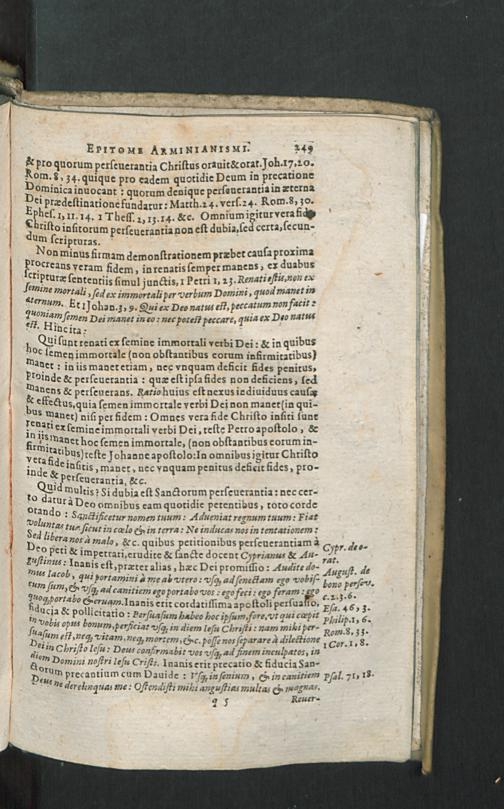 EPITOME ARMINIANISMI. 249
& pro quorum perseuerantia Christus orauit & orat. Joh.17,20.
Rom.8,34. quique pro eadem quotidie Deum in precatione
Dominica inuocant: quorum denique perseuerantia in æterna
Dei prædestinatione fundatur: Matth.24. vers.24. Rom.8,30.
Ephes.1,11.14. 1 Thess.2,13.14. &c. Omnium igitur vera fide
Christo insitorum perseuerantia non est dubia, sed certa, secun-
dum scripturas.
Non minus firmam demonstrationem præbet causa proxima
procreans veram fidem, in renatis semper manens, ex duabus
scripturæ sententiis simul junctis, 1 Petri 1,23. Renati estis, non ex
semine mortali, sed ex immortali per verbum Domini, quod manet in
æternum. Et 1 Johan.3,9. Qui ex Deo natus est, peccatum non facit:
quoniam semen Dei manet in eo: nec potest peccare, quia ex Deo natus
est. Hinc ita:
Qui sunt renati ex semine immortali verbi Dei: & in quibus
hoc semen immortale (non obstantibus eorum infirmitatibus)
manet: in iis manet etiam, nec vnquam deficit fides penitus,
proinde & perseuerantia: quæ est ipsa fides non deficiens, sed
manens & perseuerans. Ratio huius est nexus indiuiduus causæ
& effectus, quia semen immortale verbi Dei non manet (in qui-
bus manet) nisi per fidem: Omnes vera fide Christo insiti sunt
renati ex semine immortali verbi Dei, teste Petro apostolo, &
in iis manet hoc semen immortale, (non obstantibus eorum in-
firmitatibus) teste Johanne apostolo: In omnibus igitur Christo
vera fide insitis, manet, nec vnquam penitus deficit fides, pro-
inde & perseuerantia, &c.
Quid multis? Si dubia est Sanctorum perseuerantia: nec cer-
to datur à Deo omnibus eam quotidie petentibus, toto corde
orando: Sanctificetur nomen tuum: Adueniat regnum tuum: Fiat
voluntas tua sicut in cœlo & in terra: Ne inducas nos in tentationem:
Sed libera nos à malo, &c. quibus petitionibus perseuerantiam à
Deo peti & impetrari, erudite & sancte docent Cyprianus & Au-
gustinus: Inanis est, præter alias, hæc Dei promissio: Audite do-
mus Iacob, qui portamini à me ab vtero: vsq; ad senectam ego vobis-
tum sum, & vsq; ad canitiem ego portabo vos: ego feci: ego feram: ego
quoq; portabo & eruam. Inanis erit cordatissima apostoli persuasio,
fiducia & pollicitatio: Persuasum habeo hoc ipsum, fore, vt qui cœpit
in vobis opus bonum, perficiat vsq; in diem Iesu Christi: nam mihi per-
suasum est, neq; vitam, neq; mortem, &c. posse nos separare à dilectione
Dei in Christo Iesu: Deus confirmabit vos vsq; ad finem inculpatos, in
diem Domini nostri Iesu Cristi. Inanis erit precatio & fiducia San-
ctorum precantium cum Dauide: Vsq; in senium, & in canitiem
Deus ne derelinquas me: Ostendisti mihi angustias multas & magnas.
q 5 Reuer-
Cypr. de o-
rat.
August. de
bono persev.
c.2.3.6.
Esa. 46, 3.
Philip.1,6.
Rom.8.33.
1 Cor.1,8.
Psal. 71, 18.